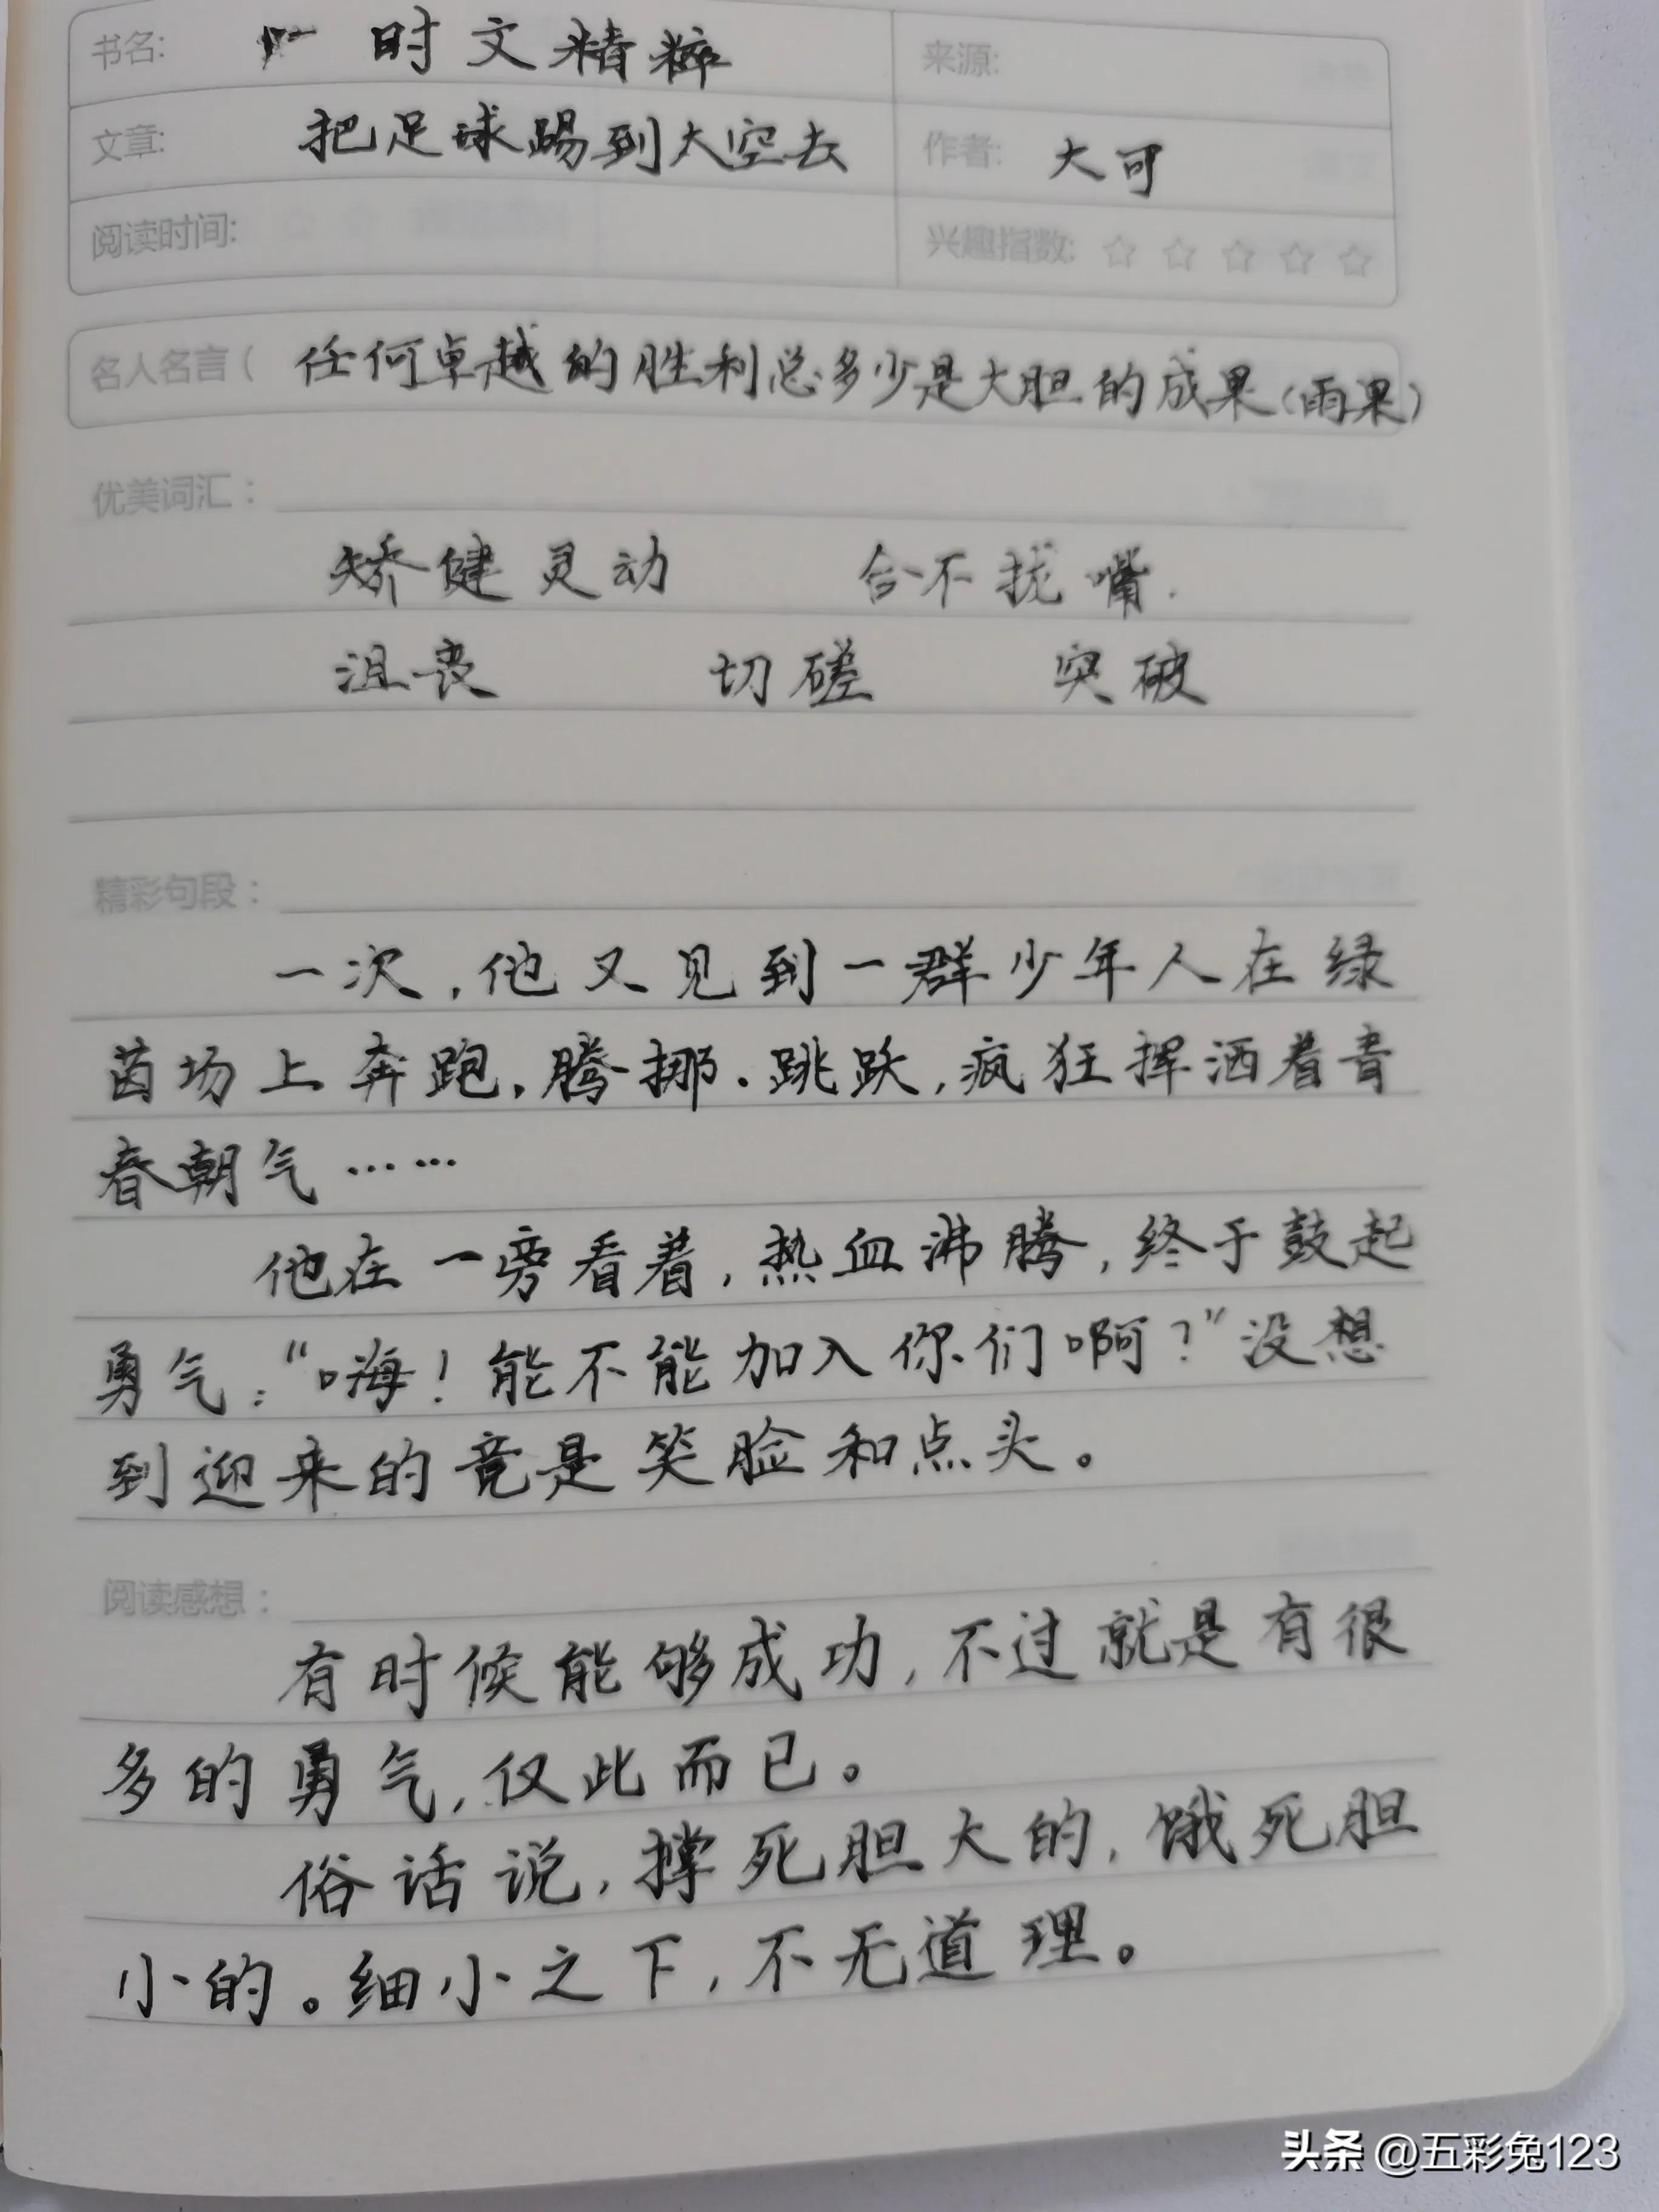 书名: 时文精粹 来源:
文章: 把足球踢到太空去 作者: 大可
阅读时间: 兴趣指数: ☆ ☆ ☆ ☆ ☆
名人名言( 任何卓越的胜利总多少是大胆的成果(雨果)
优美词汇:
矫健灵动 合不拢嘴.
沮丧 切磋 突破
精彩句段:
一次,他又见到一群少年人在绿
茵场上奔跑.腾挪.跳跃,疯狂挥洒着青
春朝气……
他在一旁看着,热血沸腾,终于鼓起
勇气:“嗨!能不能加入你们啊?”没想
到迎来的竟是笑脸和点头。
阅读感想:
有时候能够成功,不过就是有很
多的勇气,仅此而已。
俗话说,撑死胆大的,饿死胆
小的。细小之下,不无道理。
头条 @五彩兔123